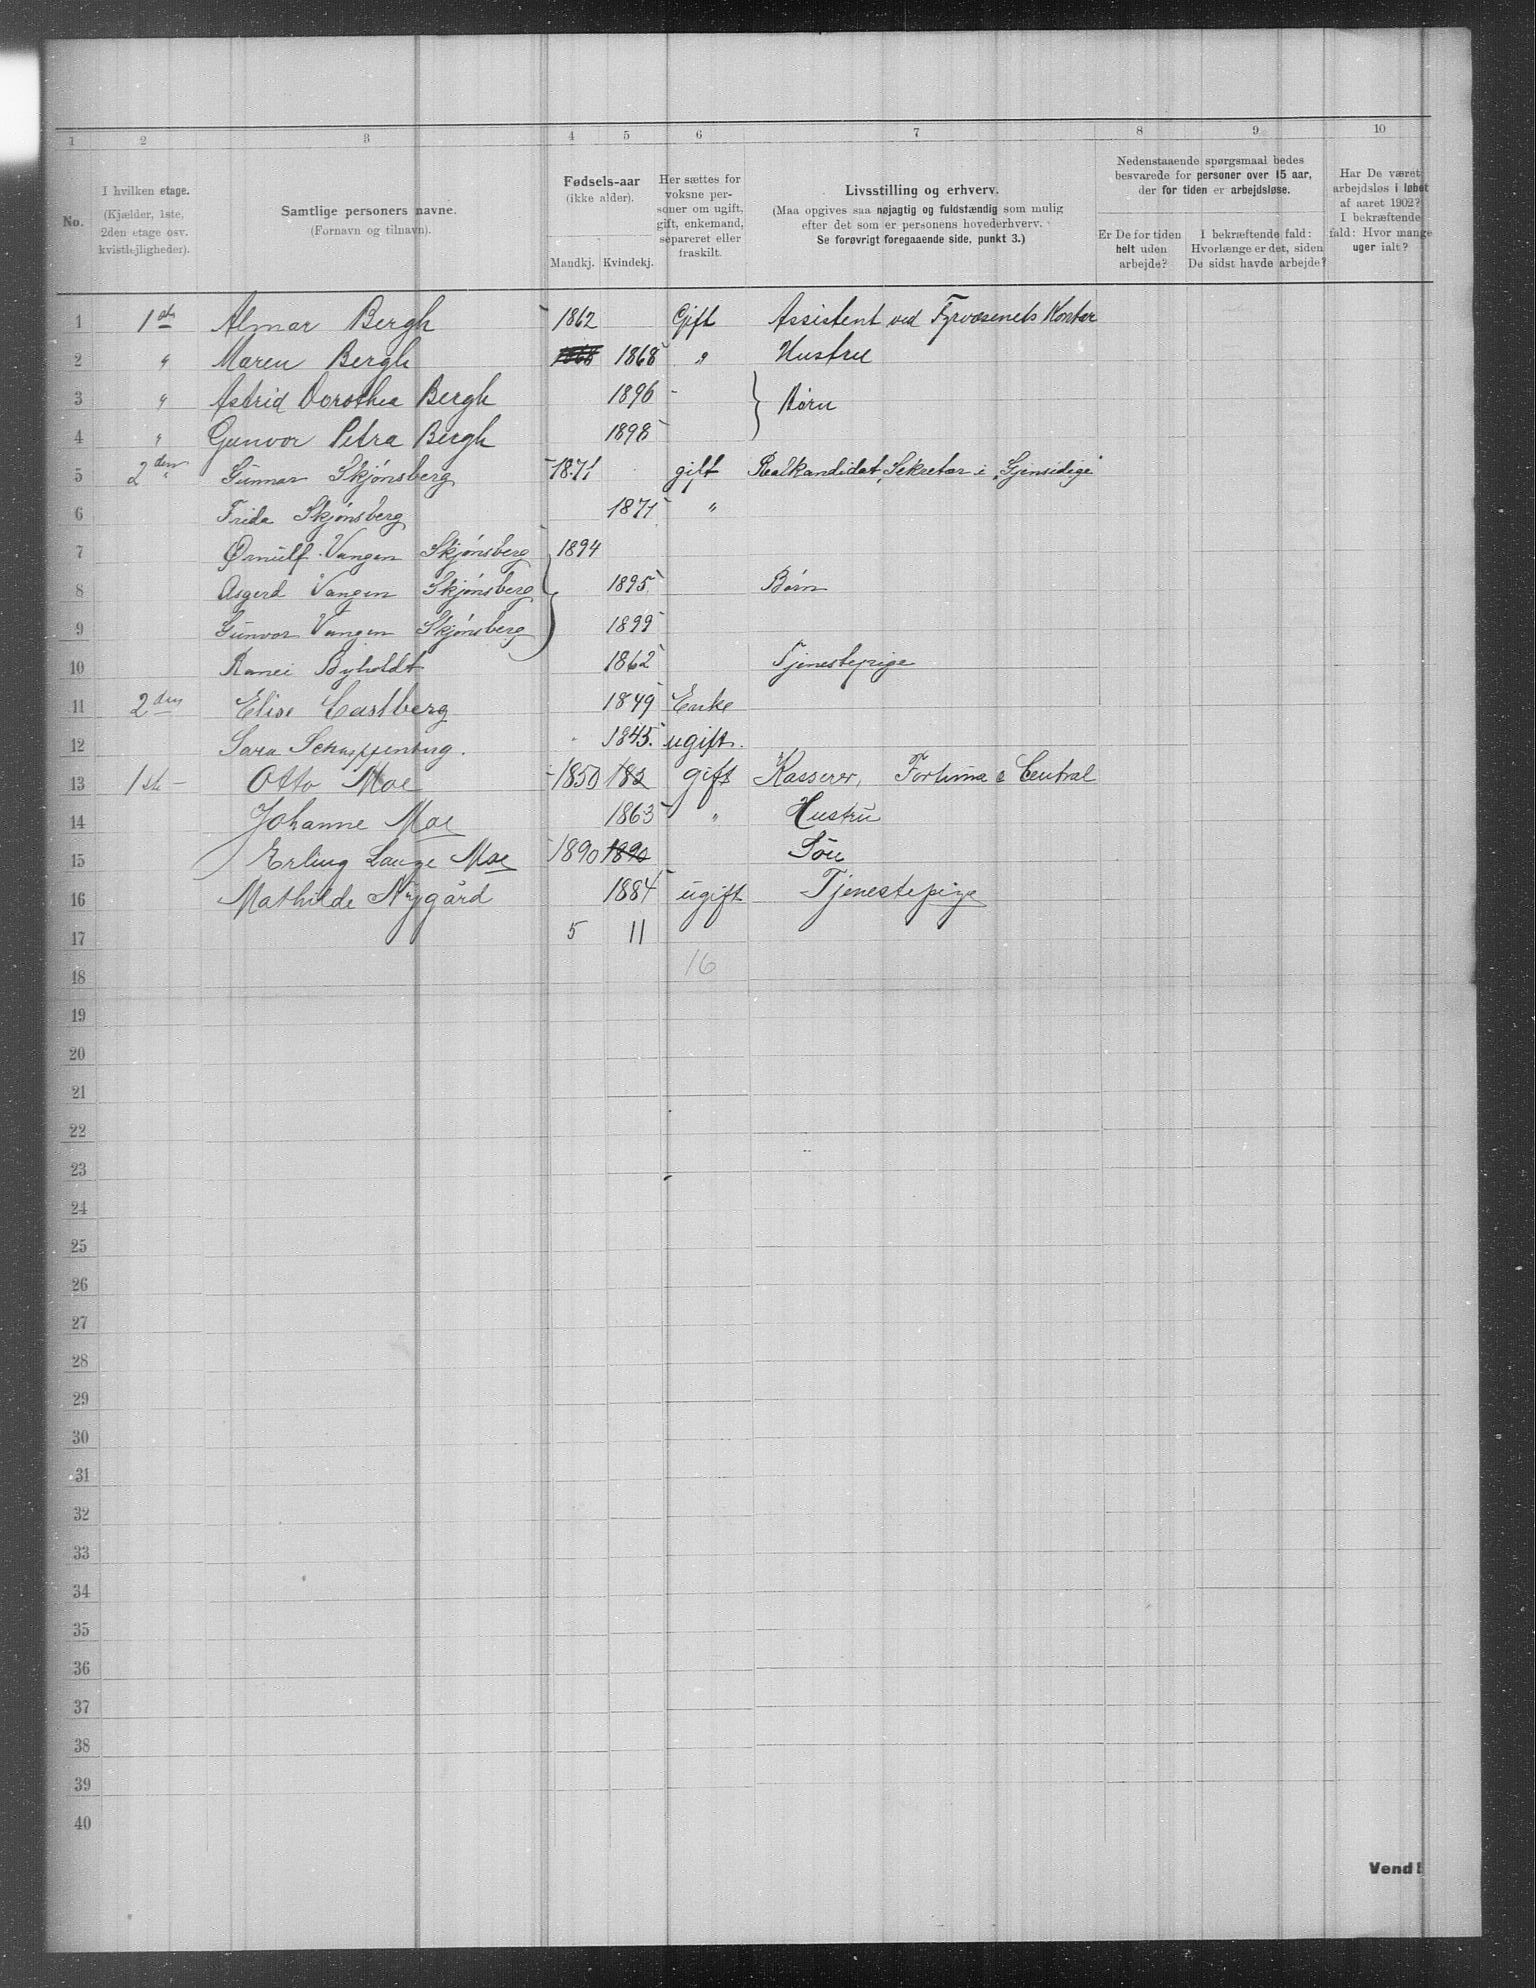 1 2 3 4 5 6 7 8 9 10
No.
I hvilken etage.
(Kjælder, 1ste,
2den etage osv.
kvistlejligheder).
Samtlige personers navne.
(Fornavn og tilnavn).
Fødsels-aar
(ikke alder).
Mandkj. Kvindekj.
Her sættes for
voksne per-
soner om ugift,
gift, enkemand,
separeret eller
fraskilt.
Livsstilling og erhverv.
(Maa opgives saa nøjagtig og fuldstændig som mulig
efter det som er personens hovederhverv.
Se forøvrigt foregaaende side, punkt 3.)
Nedenstaaende spørgsmaal bedes
besvarede for personer over 15 aar,
der for tiden er arbejdsløse.
Er De for tiden
helt uden
arbejde?
I bekræftende fald:
Hvorlænge er det, siden
De sidst havde arbejde?
Har De været
arbejdsløs i løbet
af aaret 1902?
I bekræftende
fald: Hvor mange
uger ialt?
1 1ste Almar Bergh 1862 Gift Assistent ved Fyrvæsenets Kontor
2 " Maren Bergh 1868 1868 " Hustru
3 " Astrid Dorothea Bergh 1896 - } Børn
4 " Gunvor Petra Bergh 1898
5 2den " Gunnar Skjønsberg 1871 gift Realkandidat, Sekretær i "Gjensidige"
6 Frida Skjønsberg 1871 "
7 Ørnulf Vangen Skjønsberg 1894
8 Asgerd Vangen Skjønsberg 1895 Børn
9 Gunvor Vangen Skjønsberg 1899
10 Byholdt 1862 Tjenestepige
11 2den Elise Castberg 1849 Enke
12 Sara 1845. ugift.
13 1ste - Otto Moe 1850 182 gift Kasserer, Fortuna & Central
14 Johanne Moe 1863 " Hustru
15 Erling Lange Moe 1890 1890 Søn
16 Mathilde Nygård 1884 ugift Tjenestepige
17 5 11
18 16
19
20
21
22
23
24
25
26
27
28
29
30
31
32
33
34
35
36
37
38
39
40
Vend!